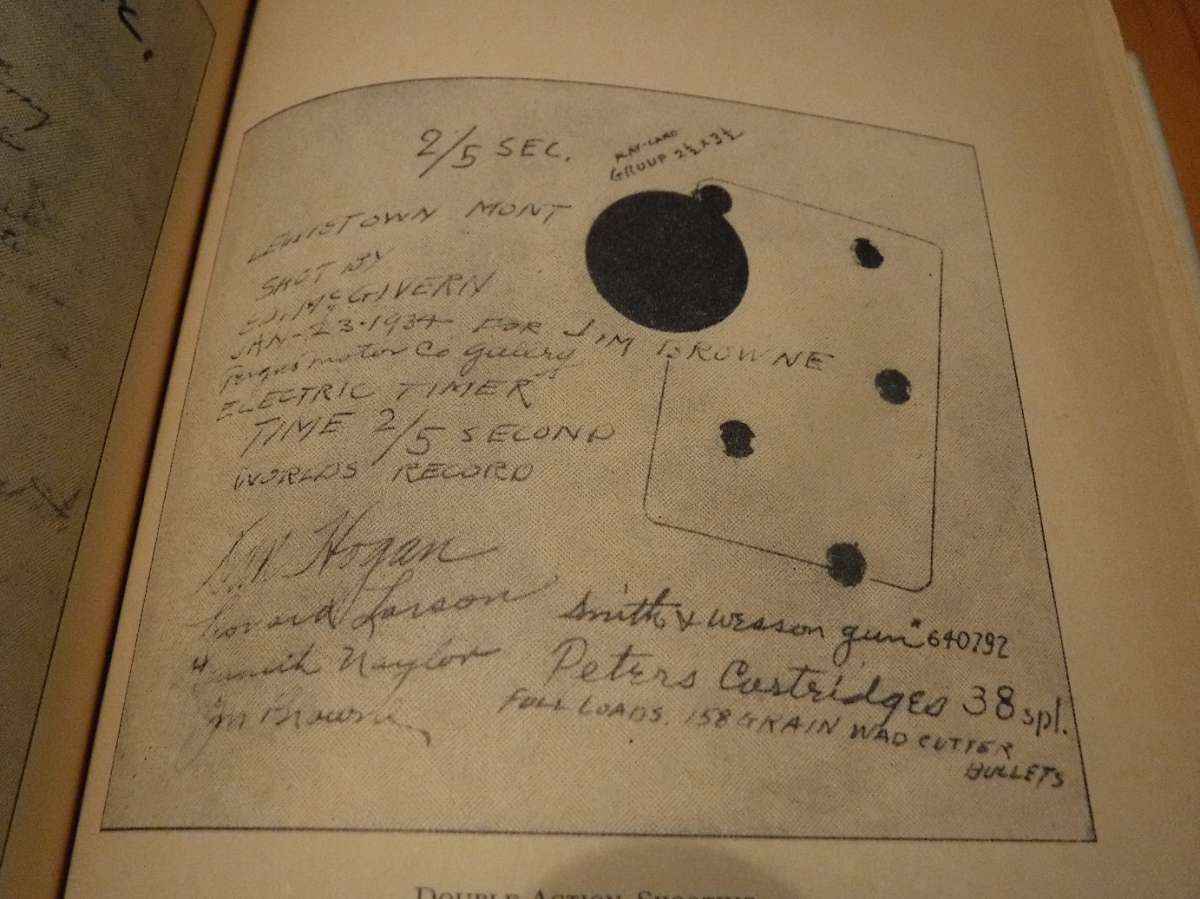 2/5 SEC.
PLAY-CARD
GROUP 2½ X 3½
LEWISTOWN MONT
SHOT BY
ED. McGIVERN
JAN-23-1934 FOR JIM BROWNE
Fergus motor Co Gallery
ELECTRIC TIMER
TIME 2/5 SECOND
WORLDS RECORD
Hogan
Larson
Naylor
Jim Browne
Smith & Wesson gun # 640792
Peters Cartridges 38 spl.
FULL LOADS. 158 GRAIN WAD CUTTER
BULLETS
DOUBLE ACTION SHOOTING